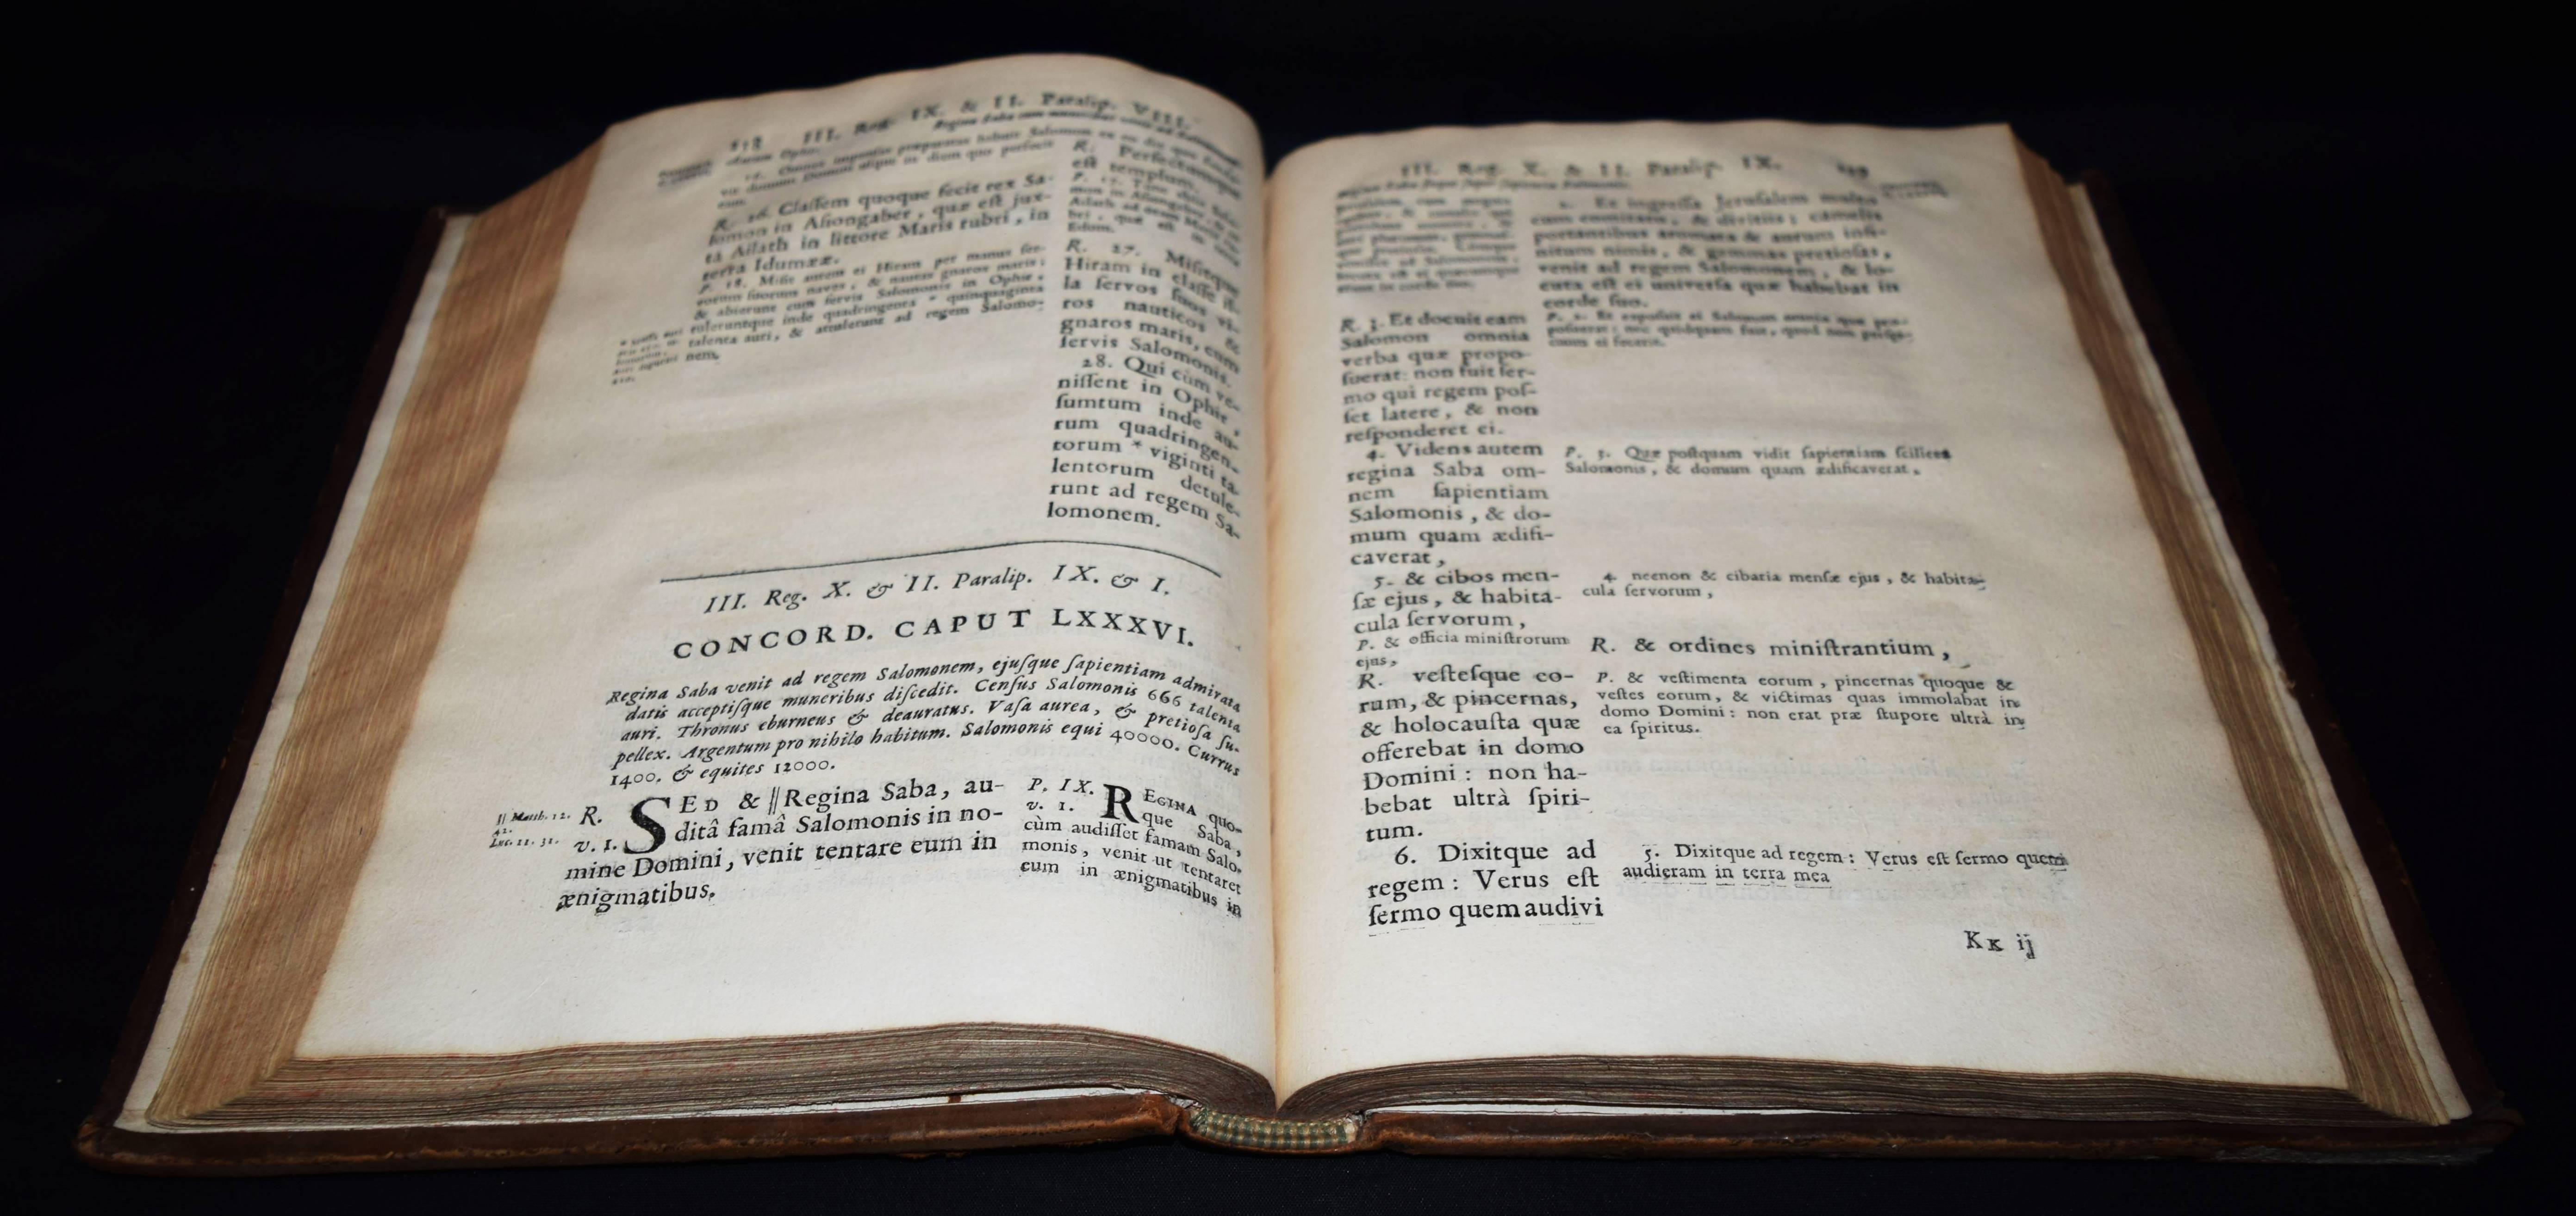 III. Reg. IX. & II. Paralip. VIII.
R. 26. Claſſem quoque fecit rex Sa-
lomon in Aſiongaber, quæ eſt jux-
ta Ailath in littore Maris rubri, in
terra Idumææ.
P. 18. Miſit autem ei Hiram per manus ſer-
vorum ſuorum naves, & nautas gnaros maris;
& abierunt cum ſervis Salomonis in Ophir,
tuleruntque inde quadringenta * quinquaginta
talenta auri, & attulerunt ad regem Salomo-
nem.
R. Perfectumque
eſt templum.
R. 27. Miſitque
Hiram in claſſe il-
la ſervos ſuos vi-
ros nauticos &
gnaros maris, cum
ſervis Salomonis.
28. Qui cùm ve-
niſſent in Ophir,
ſumtum inde au-
rum quadringen-
torum * viginti ta-
lentorum detule-
runt ad regem Sa-
lomonem.
III. Reg. X. & II. Paralip. IX. & I.
CONCORD. CAPUT LXXXVI.
Regina Saba venit ad regem Salomonem, ejuſque ſapientiam admirata
datis acceptiſque muneribus diſcedit. Cenſus Salomonis 666 talenta
auri. Thronus eburneus & deauratus. Vaſa aurea, & pretioſa ſu-
pellex. Argentum pro nihilo habitum. Salomonis equi 40000. Currus
1400. & equites 12000.
|| Matth. 12.
42.
Luc. 11. 31.
R. SED & || Regina Saba, au-
v. 1. ditâ famâ Salomonis in no-
mine Domini, venit tentare eum in
ænigmatibus.
P. IX. REGINA quo-
v. 1. que Saba,
cùm audiſſet famam Salo-
monis, venit ut tentaret
eum in ænigmatibus in
III. Reg. X. & II. Paralip. IX.
2. Et ingreſſa Jeruſalem multo
cum comitatu, & divitiis; camelis
portantibus aromata & aurum infi-
nitum nimis, & gemmas pretioſas,
venit ad regem Salomonem, & lo-
cuta eſt ei univerſa quæ habebat in
corde ſuo.
R. 3. Et docuit eam
Salomon omnia
verba quæ propo-
ſuerat: non fuit ſer-
mo qui regem poſ-
ſet latere, & non
reſponderet ei.
P. 2. Et expoſuit ei Salomon omnia quæ pro-
poſuerat: nec quidquam fuit, quod non perſpi-
cuum ei fecerit.
4. Videns autem
regina Saba om-
nem ſapientiam
Salomonis, & do-
mum quam ædifi-
caverat,
P. 3. Quæ poſtquam vidit ſapientiam ſcilicet
Salomonis, & domum quam ædificaverat,
5. & cibos men-
ſæ ejus, & habita-
cula ſervorum,
4. necnon & cibaria menſæ ejus, & habita-
cula ſervorum,
P. & officia miniſtrorum
ejus,
R. & ordines miniſtrantium,
R. veſteſque eo-
rum, & pincernas,
& holocauſta quæ
offerebat in domo
Domini: non ha-
bebat ultrà ſpiri-
tum.
P. & veſtimenta eorum, pincernas quoque &
veſtes eorum, & victimas quas immolabat in
domo Domini: non erat præ ſtupore ultrà in
ea ſpiritus.
6. Dixitque ad
regem: Verus eſt
ſermo quem audivi
5. Dixitque ad regem: Verus eſt ſermo quem
audieram in terra mea
Kk ij